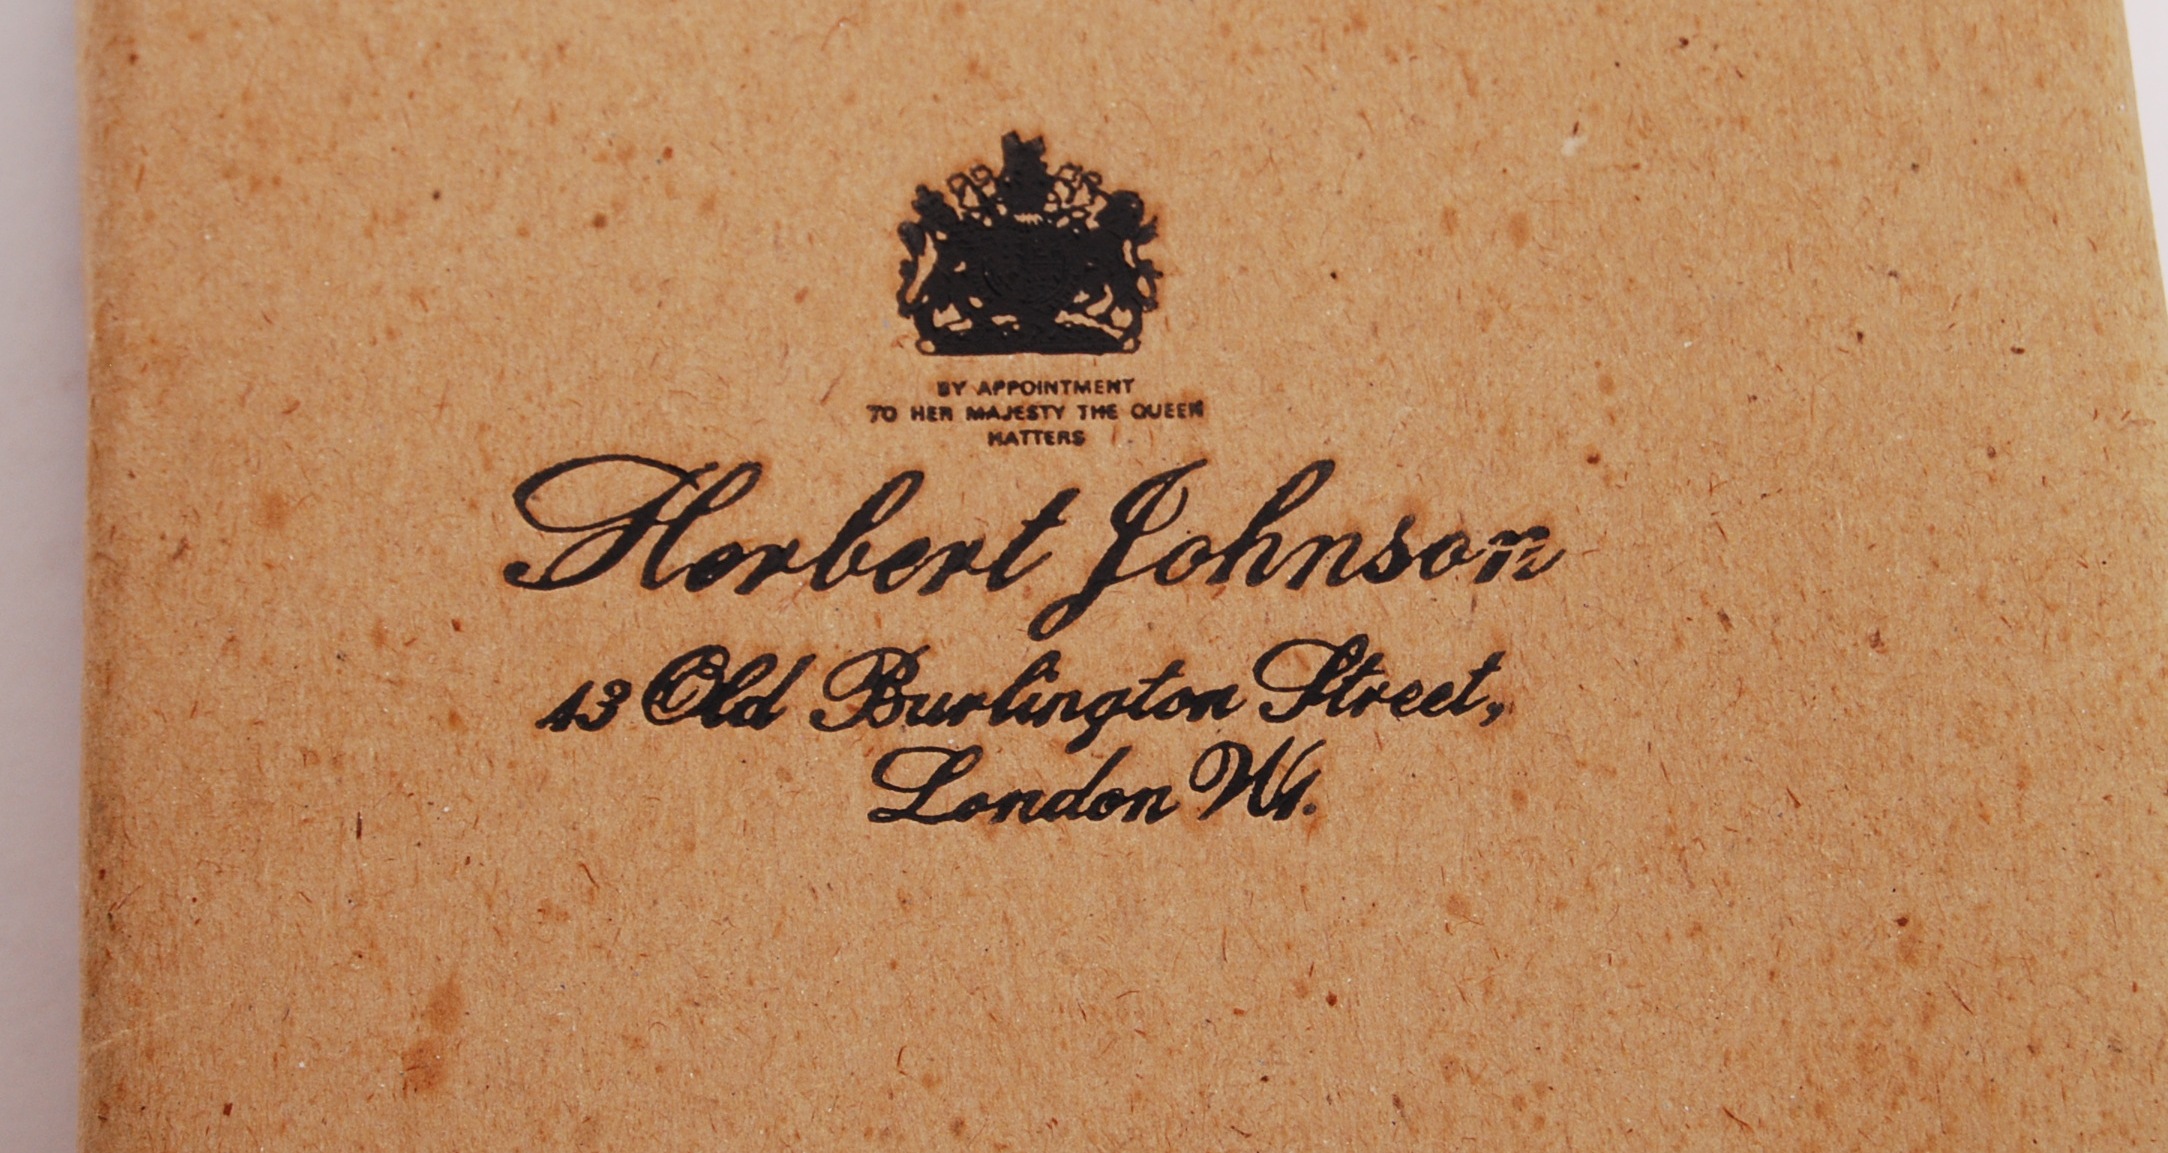 BY APPOINTMENT
TO HER MAJESTY THE QUEEN
HATTERS
Herbert Johnson
13 Old Burlington Street,
London W1.